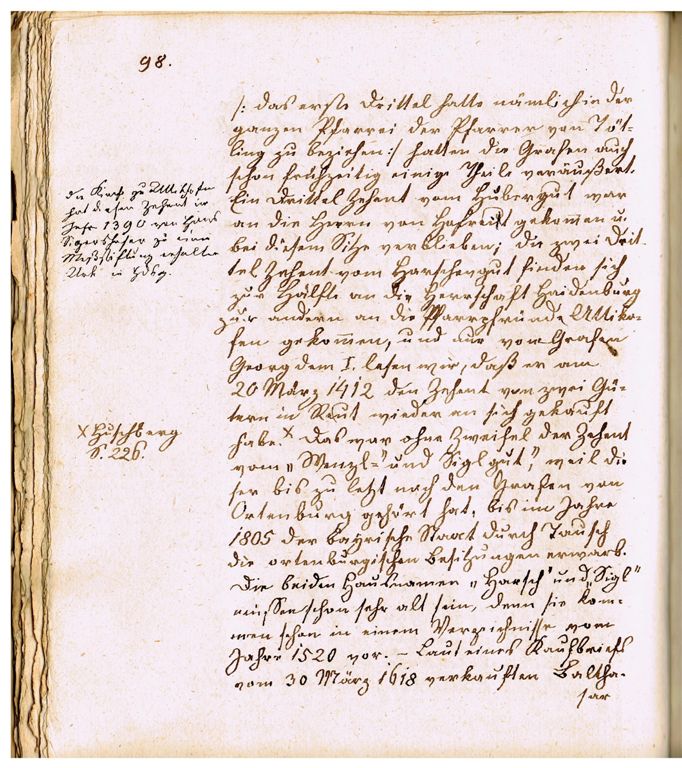 98.
/: das erste Drittel hatte nämlich in der
ganzen Pfarrei der Pfarrer von Töt-
ling zu beziehen :/ hatten die Grafen auch
schon frühzeitig einige Theile veräußert.
Ein Drittel Zehent vom Hubergut war
an die Herrn von Hofreit gekommen u
bei diesem Sitze verblieben; die zwei Drit-
tel Zehent vom Harschengut finden sich
zur Hälfte an die Herrschaft Haidenburg
zur andern an die Pfarrpfründe Uttiko-
fen gekommen, und nur vom Grafen
Georg dem I. lesen wir, daß er am
20 März 1412 den Zehent von zwei Gü-
tern in Reut wieder an sich gekauft
habe.X Das war ohne Zweifel der Zehent
vom „Wenzl=" und Siglgut", weil die
ser bis zu letzt noch den Grafen von
Ortenburg gehört hat, bis im Jahre
1805 der bayrische Staat durch Tausch
die ortenburgischen Besitzungen erwarb.
Die beiden Hausnamen „Harsch" und „Sigl"
müssen schon sehr alt sein, denn sie kom-
men schon in einem Verzeichnisse vom
Jahre 1520 vor. – Laut eines Kaufbriefs
vom 30 März 1618 verkauften Baltha-
sar
die Kirche zu
hat diesen Zehent im
Jahre 1390 von Hans
zu einer
Meßstiftung erhalten
Urk. in
X Huschberg
S. 226.